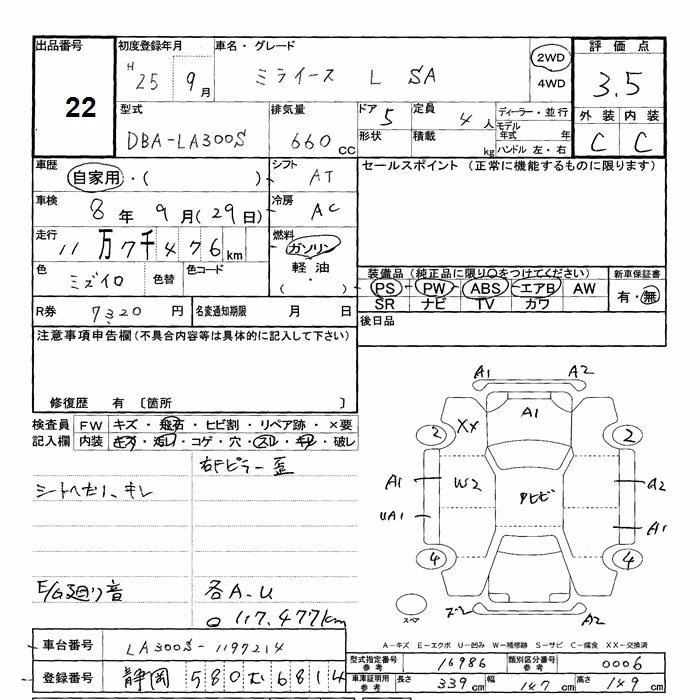 出品番号 初度登録年月 車名・グレード 評価点
22
H 25 9月 ミライース L SA 2WD 4WD 3.5
型式 排気量 ドア 定員 ディーラー・並行 外装 内装
DBA-LA300S 660CC 5 4人 モデル年式 年 C C
形状 積載 kg ハンドル 左・右
車歴 自家用・( ) シフト AT セールスポイント (正常に機能するものに限ります)
車検 8年9月(29日) 冷房 AC
走行 11万7千476km 燃料 ガソリン
色 ミズイロ 色替 色コード 軽油 ・ ( )
装備品(純正品に限り○をつけてください) 新車保証書
PS PW ABS エアB AW 有・無
SR ナビ TV カワ
R券 7320円 名変通知期限 月 日 後日品
注意事項申告欄(不具合内容等は具体的に記入して下さい)
修復歴 有 〔箇所 〕
検査員 FW キズ・飛石・ヒビ割・リペア跡・×要
記入欄 内装 キズ・汚レ・コゲ・穴・スレ・キレ・破レ
右Fピラー歪
シートヘタリ、キレ
E/G廻り音 各A.U
117,477km
A1 A2
A1
XX
2 2
A1 W2 アルビ A2
UA1 A1
4 4
スペア A2
A-キズ E-エクボ U-凹み W-補修跡 S-サビ C-腐食 XX-交換済
車台番号 LA300S-1197214
型式指定番号 参考 16986 類別区分番号 参考 0006
登録番号 静岡 580 6814
車庫証明用 参考 長さ 339cm 幅 147cm 高さ 149cm